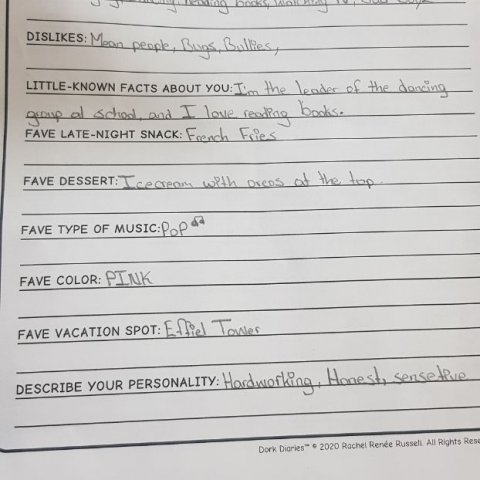 reading books,
DISLIKES: Mean people, Bugs, Bullies,
LITTLE-KNOWN FACTS ABOUT YOU: I'm the leader of the dancing
group at school, and I love reading books.
FAVE LATE-NIGHT SNACK: French Fries
FAVE DESSERT: Icecream with oreos at the top
FAVE TYPE OF MUSIC: POP
FAVE COLOR: PINK
FAVE VACATION SPOT: Effiel Tower
DESCRIBE YOUR PERSONALITY: Hardworking, Honest, sensetive
Dork Diaries™ © 2020 Rachel Renée Russell. All Rights Rese